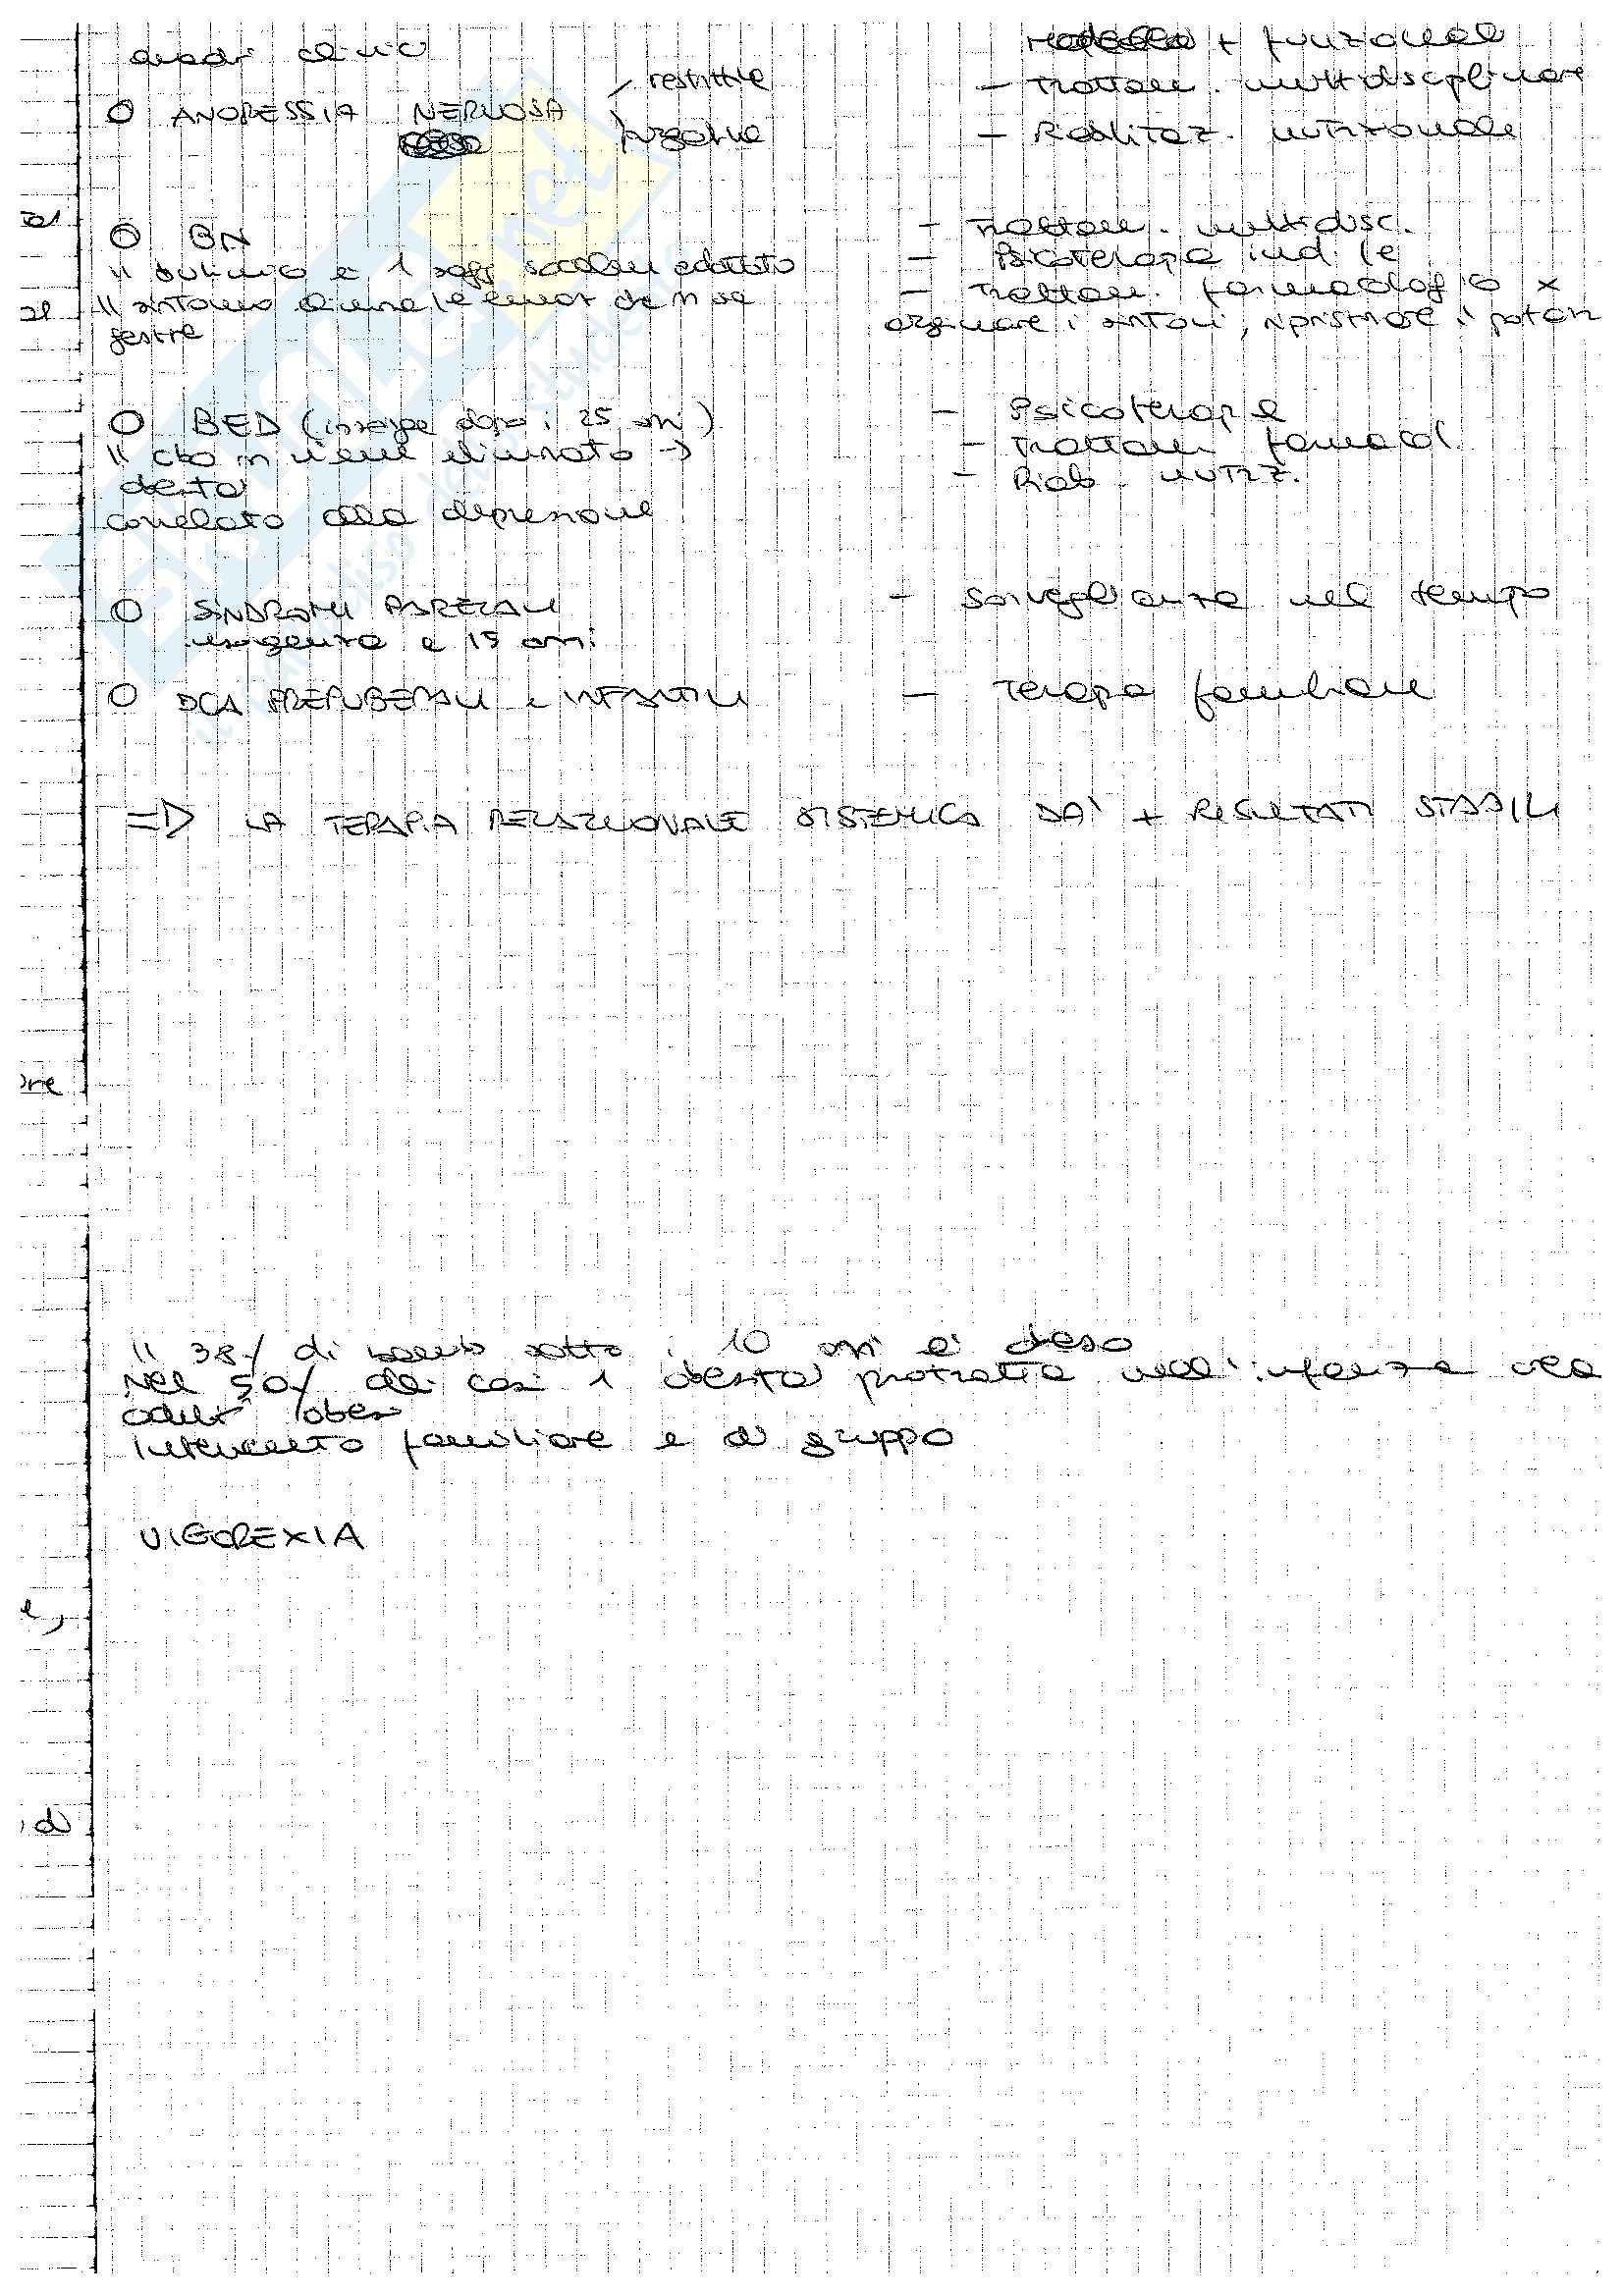 quadri clinici
+ funzionale
ANORESSIA NERVOSA
restrittiva
purgativa
- Trattam. multidisciplinare
- Riabilitaz. nutrizionale
BN
Il bulimico è 1 sogg socialm adattato
Il sintomo elimina le emoz che n sa
gestire
- Trattam. multidisc.
- Psicoterapia ind.le
- Trattam. farmacologico x
arginare i sintomi, ripristinare i
BED (insorge dopo i 25 anni)
Il cibo n viene eliminato →
obesità
correlato alla depressione
- Psicoterapia
- Trattam farmacol.
- Riab. nutriz.
SINDROMI PARZIALI
insorgenza a 15 anni
- Sorveglianza nel tempo
DCA PREPUBERALI e INFANTILI
- Terapia familiare
=> LA TERAPIA RELAZIONALE SISTEMICA DA' + RISULTATI STABILI
ore
Il 38% di bamb sotto i 10 anni è obeso
Nel 50% dei casi 1 obesità protratta nell'infanzia crea
adulti obesi
Intervento familiare e di gruppo
VIGOREXIA
e,
di